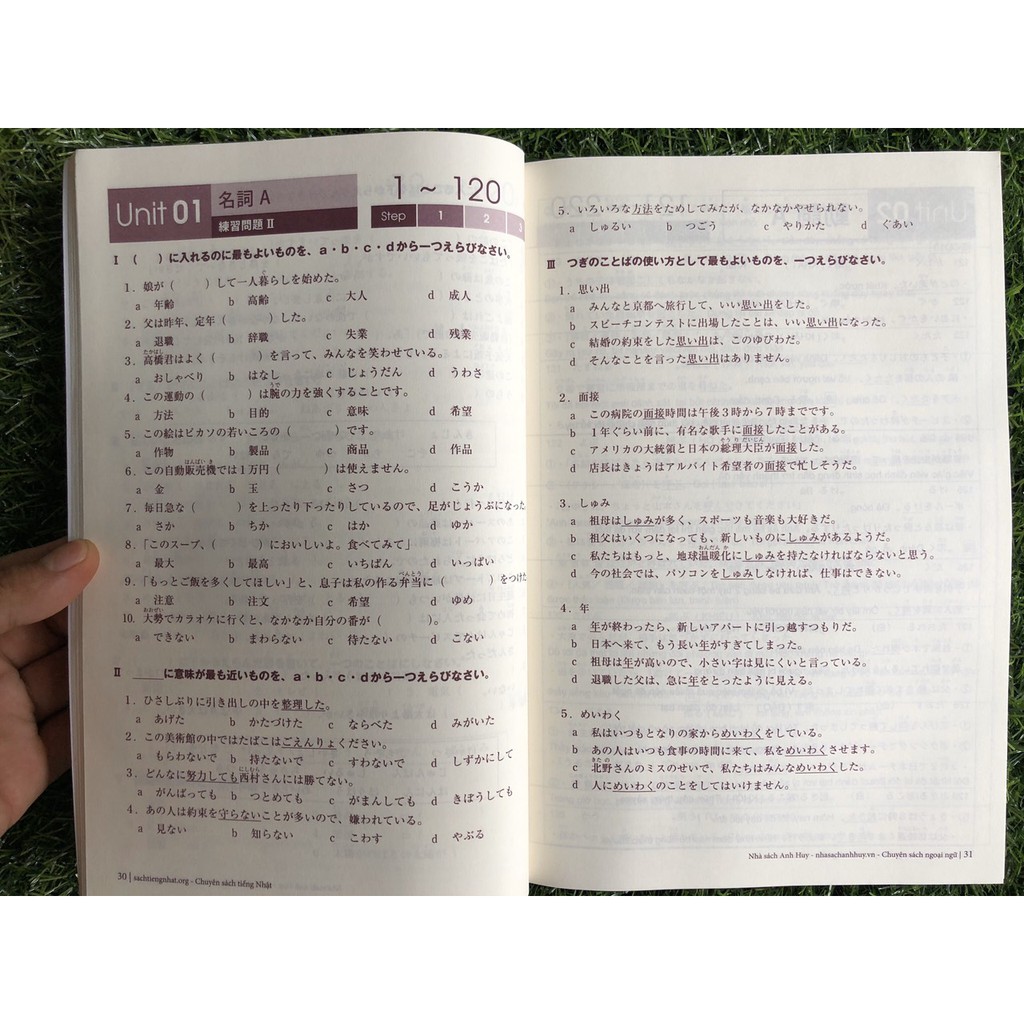 Unit 01
名詞 A
練習問題 Ⅱ
1 ～ 120
Step 1 2 3
Ⅰ （　）に入れるのに最もよいものを、a・b・c・dから一つえらびなさい。
1. 娘が（　　）して一人暮らしを始めた。
a 年齢 b 高齢 c 大人 d 成人
2. 父は昨年、定年（　　）した。
a 退職 b 辞職 c 失業 d 残業
3. 高橋君はよく（　　）を言って、みんなを笑わせている。
a おしゃべり b はなし c じょうだん d うわさ
4. この運動の（　　）は腕の力を強くすることです。
a 方法 b 目的 c 意味 d 希望
5. この絵はピカソの若いころの（　　）です。
a 作物 b 製品 c 商品 d 作品
6. この自動販売機では1万円（　　）は使えません。
a 金 b 玉 c さつ d こうか
7. 毎日急な（　　）を上ったり下ったりしているので、足がじょうぶになった
a さか b ちか c はか d ゆか
8. 「このスープ、（　　）においしいよ。食べてみて」
a 最大 b 最高 c いちばん d いっぱい
9. 「もっとご飯を多くしてほしい」と、息子は私の作る弁当に（　　）をつけた
a 注意 b 注文 c 希望 d ゆめ
10. 大勢でカラオケに行くと、なかなか自分の番が（　　）。
a できない b まわらない c 待たない d こない
Ⅱ ＿＿＿に意味が最も近いものを、a・b・c・dから一つえらびなさい。
1. ひさしぶりに引き出しの中を整理した。
a あげた b かたづけた c ならべた d みがいた
2. この美術館の中ではたばこはごえんりょください。
a もらわないで b 持たないで c すわないで d しずかにして
3. どんなに努力しても西村さんには勝てない。
a がんばっても b つとめても c がまんしても d きぼうしても
4. あの人は約束を守らないことが多いので、嫌われている。
a 見ない b 知らない c こわす d やぶる
30 | sachtiengnhat.org - Chuyên sách tiếng Nhật
5. いろいろな方法をためしてみたが、なかなかやせられない。
a しゅるい b つごう c やりかた d ぐあい
Ⅲ つぎのことばの使い方として最もよいものを、一つえらびなさい。
1. 思い出
a みんなと京都へ旅行して、いい思い出をした。
b スピーチコンテストに出場したことは、いい思い出になった。
c 結婚の約束をした思い出は、このゆびわだ。
d そんなことを言った思い出はありません。
2. 面接
a この病院の面接時間は午後3時から7時までです。
b 1年ぐらい前に、有名な歌手に面接したことがある。
c アメリカの大統領と日本の総理大臣が面接した。
d 店長はきょうはアルバイト希望者の面接で忙しそうだ。
3. しゅみ
a 祖母はしゅみが多く、スポーツも音楽も大好きだ。
b 祖父はいくつになっても、新しいものにしゅみがあるようだ。
c 私たちはもっと、地球温暖化にしゅみを持たなければならないと思う。
d 今の社会では、パソコンをしゅみしなければ、仕事はできない。
4. 年
a 年が終わったら、新しいアパートに引っ越すつもりだ。
b 日本へ来て、もう長い年がすぎてしまった。
c 祖母は年が高いので、小さい字は見にくいと言っている。
d 退職した父は、急に年をとったように見える。
5. めいわく
a 私はいつもとなりの家からめいわくをしている。
b あの人はいつも食事の時間に来て、私をめいわくさせます。
c 北野さんのミスのせいで、私たちはみんなめいわくした。
d 人にめいわくのことをしてはいけません。
Nhà sách Anh Huy - nhasachanhhuy.vn - Chuyên sách ngoại ngữ | 31